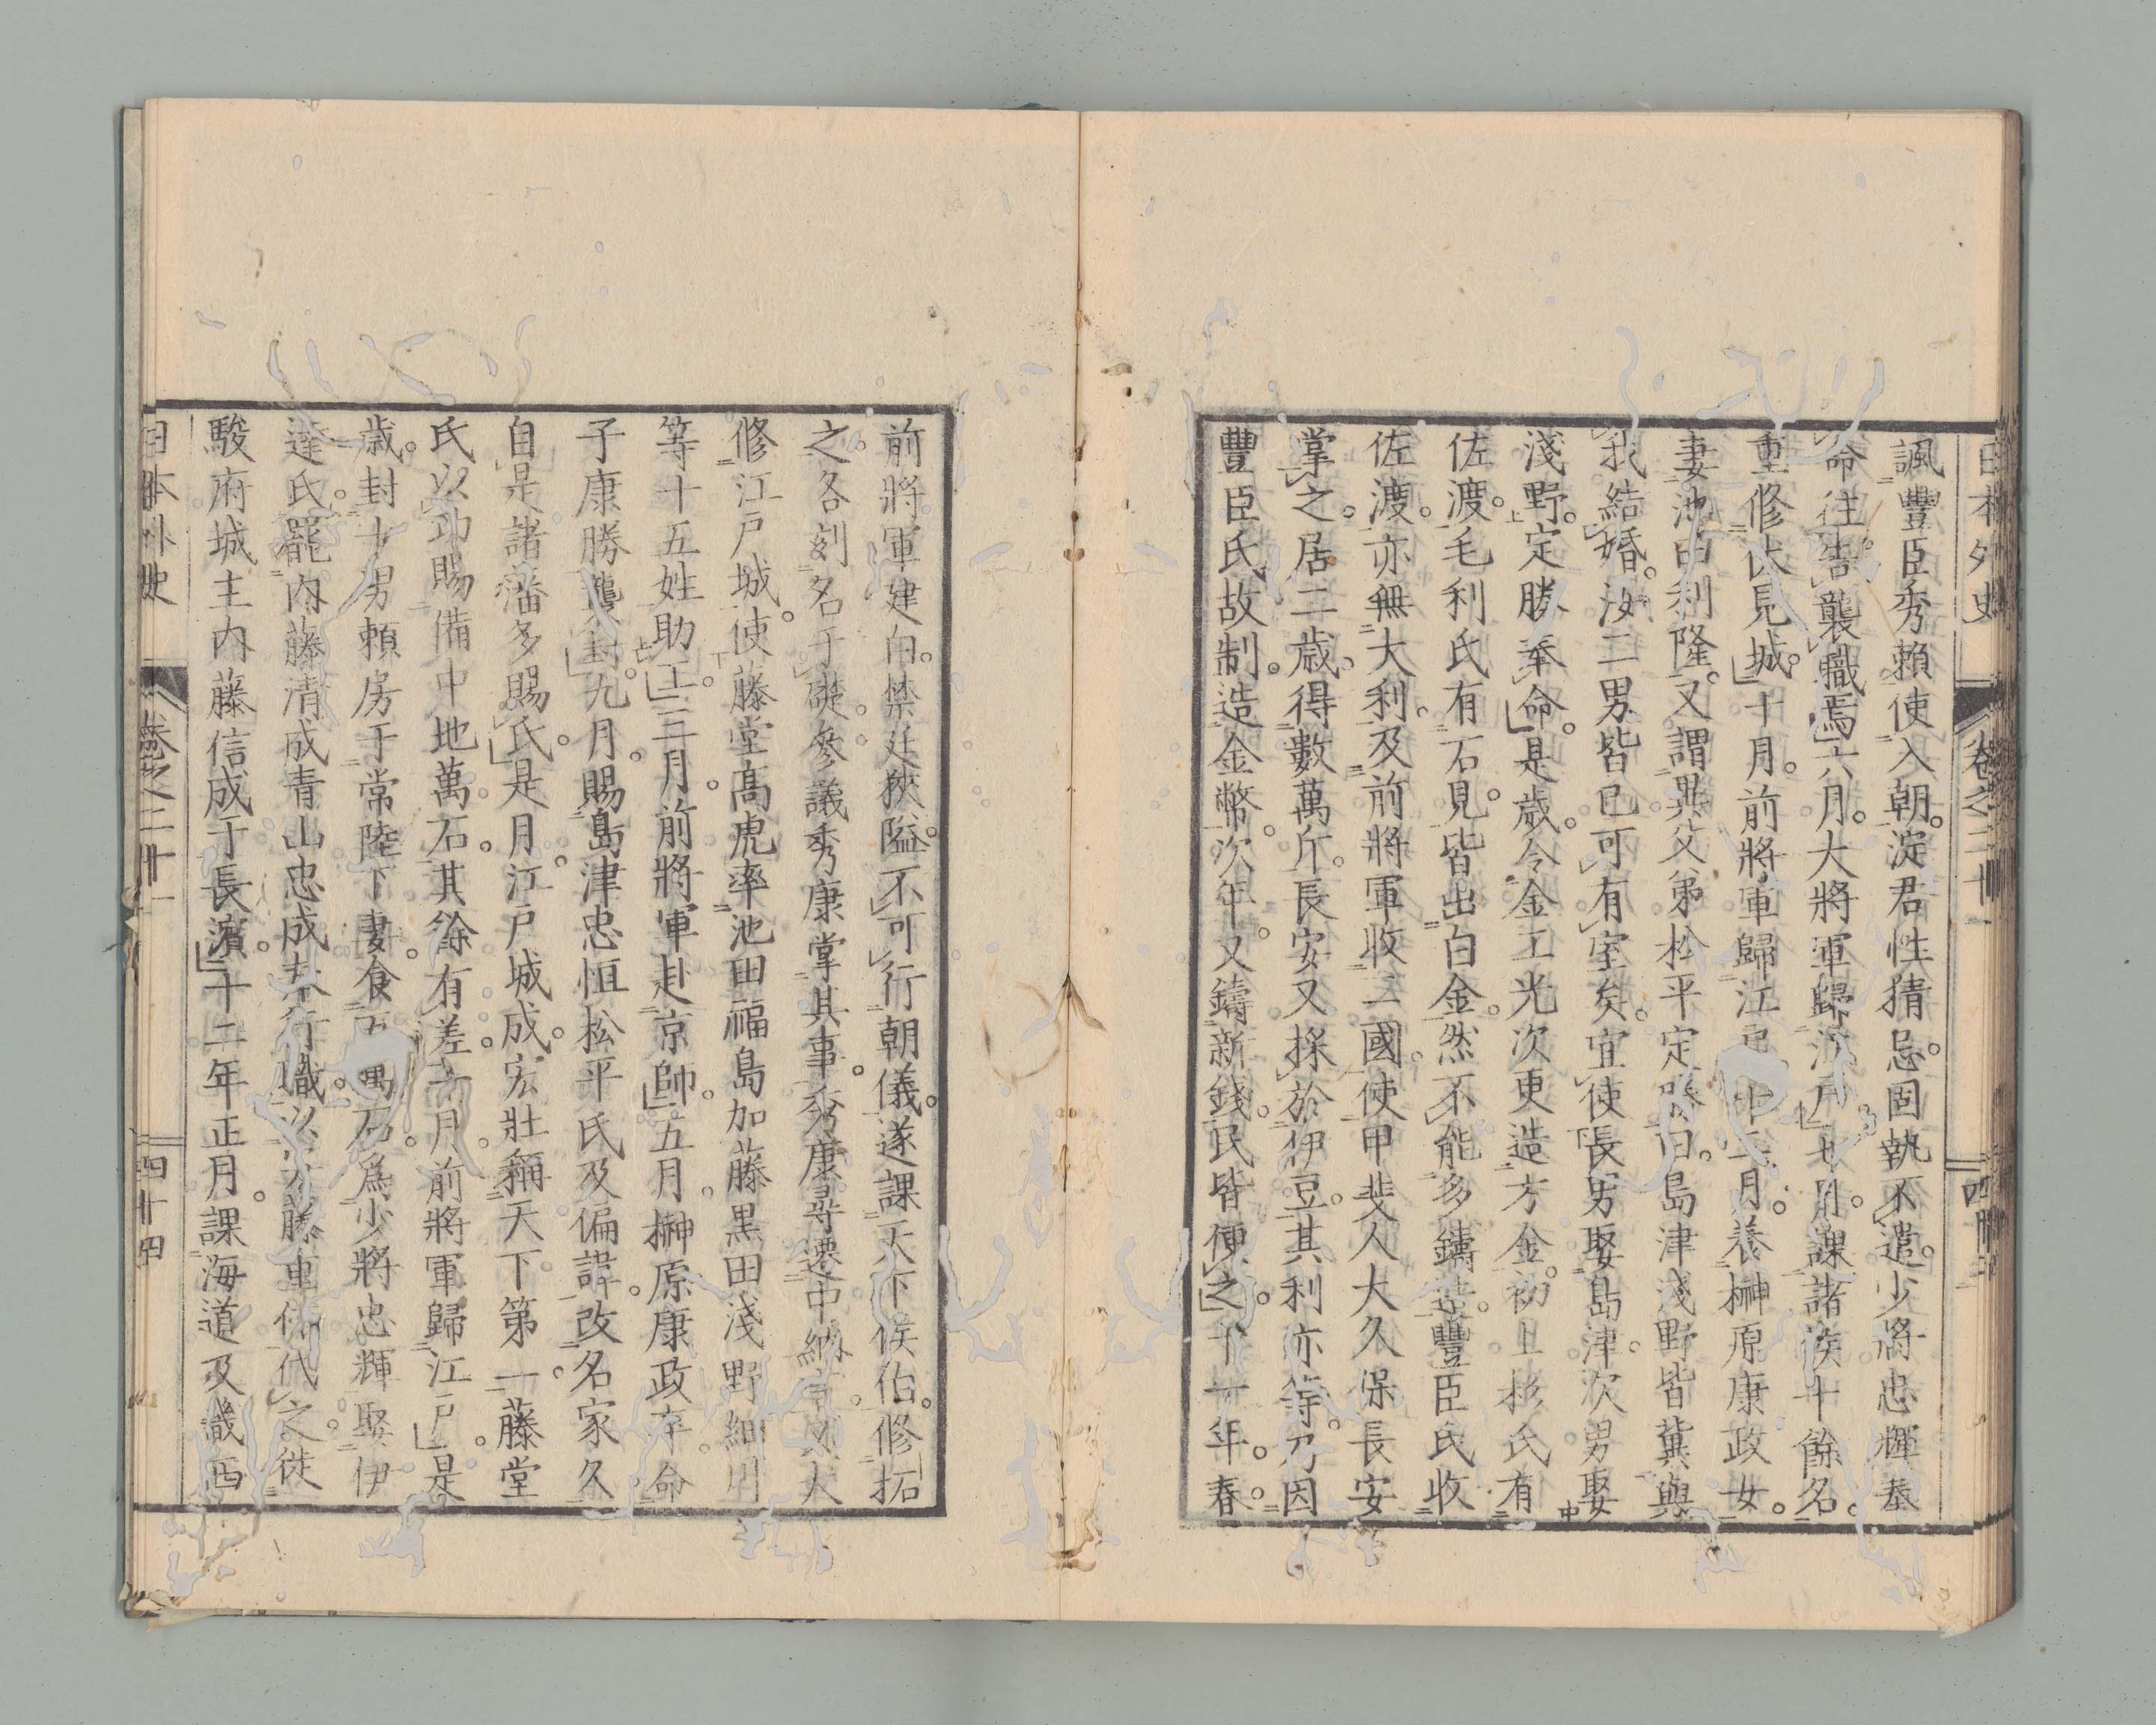 日本外史 卷之二十一 四十三
諷豐臣秀賴使入朝。淀君性猜忌。固執不遣。少將忠輝奉
命往告襲職焉。六月。大將軍歸江戶。七月。課諸侯十餘名。
重修伏見城。十月。前將軍歸江戶。十二月。養榊原康政女。
妻池田利隆。又謂異父弟松平定勝曰。島津淺野皆冀與
我結婚。汝二男皆已可有室矣。宜使長男娶島津。次男娶
淺野。定勝奉命。是歲。令金工光次更造方金。初上杉氏有
佐渡。毛利氏有石見。皆出白金。然不能多鑄造。豐臣氏收
佐渡。亦無大利。及前將軍收二國。使甲斐人大久保長安
掌之。居二歲。得數萬斤。長安又採於伊豆。其利亦等。乃因
豐臣氏故制。造金幣。次年。又鑄新錢。民皆便之。十一年。春。
前將軍建白。禁廷狹隘。不可行朝儀。遂課天下侯伯。修拓
之。各刻名于礎。參議秀康掌其事。秀康尋遷中納言。又大
修江戶城。使藤堂高虎率池田福島加藤黑田淺野細川
等十五姓助工。三月。前將軍赴京師。五月。榊原康政卒。命
子康勝襲封。九月。賜島津忠恒松平氏及偏諱。改名家久
自是諸藩多賜氏。是月。江戶城成。宏壯稱天下第一。藤堂
氏以功賜備中地萬石。其餘有差。十月。前將軍歸江戶。是
歲。封十男賴房于常陸下妻。食五萬石。爲少將忠輝娶伊
達氏。罷內藤清成青山忠成奉行職。以 藤重 代之。徙
駿府城主內藤信成于長濱。十二年。正月。課海道及畿西
日本外史 卷之二十一 四十四